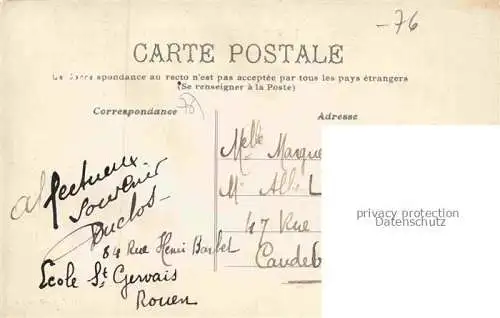 -76
CARTE POSTALE
La Correspondance au recto n'est pas acceptée par tous les pays étrangers
(Se renseigner à la Poste)
Correspondance
Adresse
affectueux
souvenir
Duclos
84 Rue Henri Barbet
Ecole St Gervais
Rouen
Melle Margue
Mr
47 Rue
Caudeb
privacy protection
Datenschutz